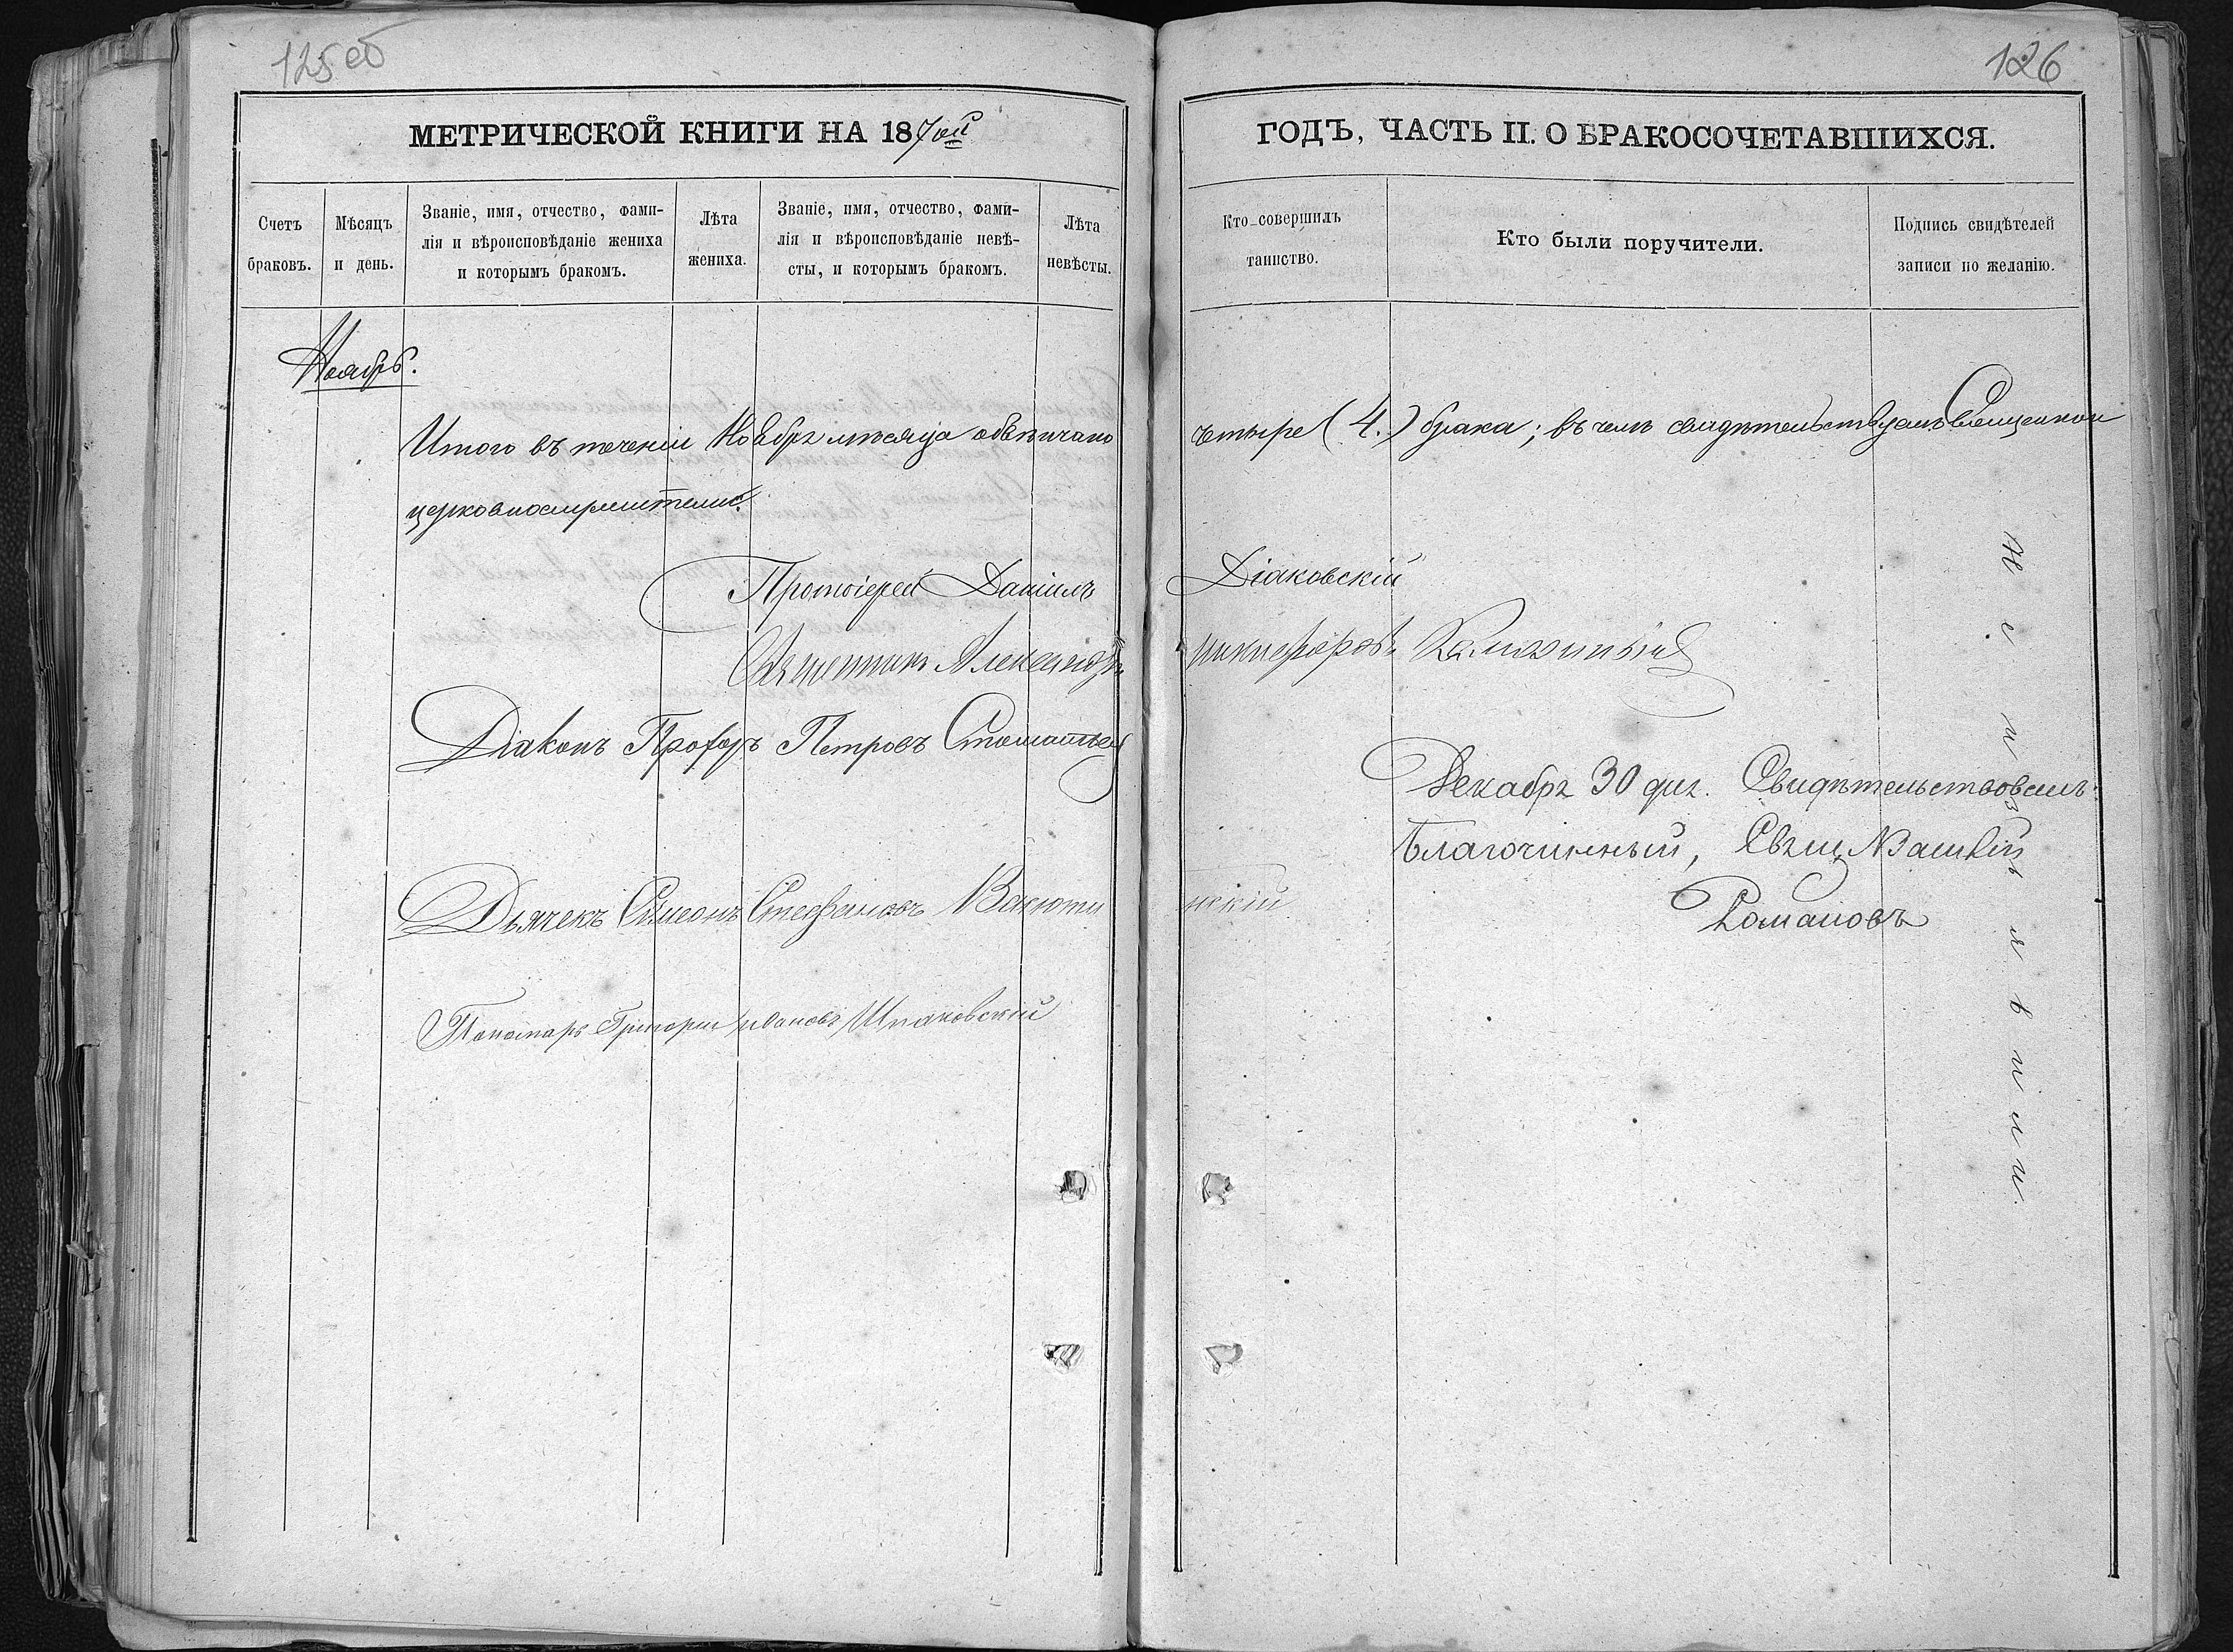 125 об
126
МЕТРИЧЕСКОЙ КНИГИ НА 1870й
ГОДЪ, ЧАСТЬ II. О БРАКОСОЧЕТАВШИХСЯ.
Счетъ браковъ.
Мѣсяцъ и день.
Званіе, имя, отчество, фами-
лія и вѣроисповѣданіе жениха
и которымъ бракомъ.
Лѣта жениха.
Званіе, имя, отчество, фами-
лія и вѣроисповѣданіе невѣ-
сты, и которымъ бракомъ.
Лѣта невѣсты.
Кто совершилъ таинство.
Кто были поручители.
Подпись свидѣтелей записи по желанію.
Ноябрь.
Итого въ теченіи Ноября мѣсяца обвѣнчано четыре (4.) брака; въ чемъ свидѣтельствуемъ Священно
церковнослужители:
Протоіерей Даніилъ Діаковскій
Священникъ Александръ Никифоровъ
Діаконъ Прохоръ Петровъ
Дьячекъ Симеонъ Стефановъ
Пономарь Григорій Ивановъ Шпаковскій
Декабря 30 дня. Свидѣтельствовалъ
Благочинный, Свящ.
Романовъ
Не изъявили